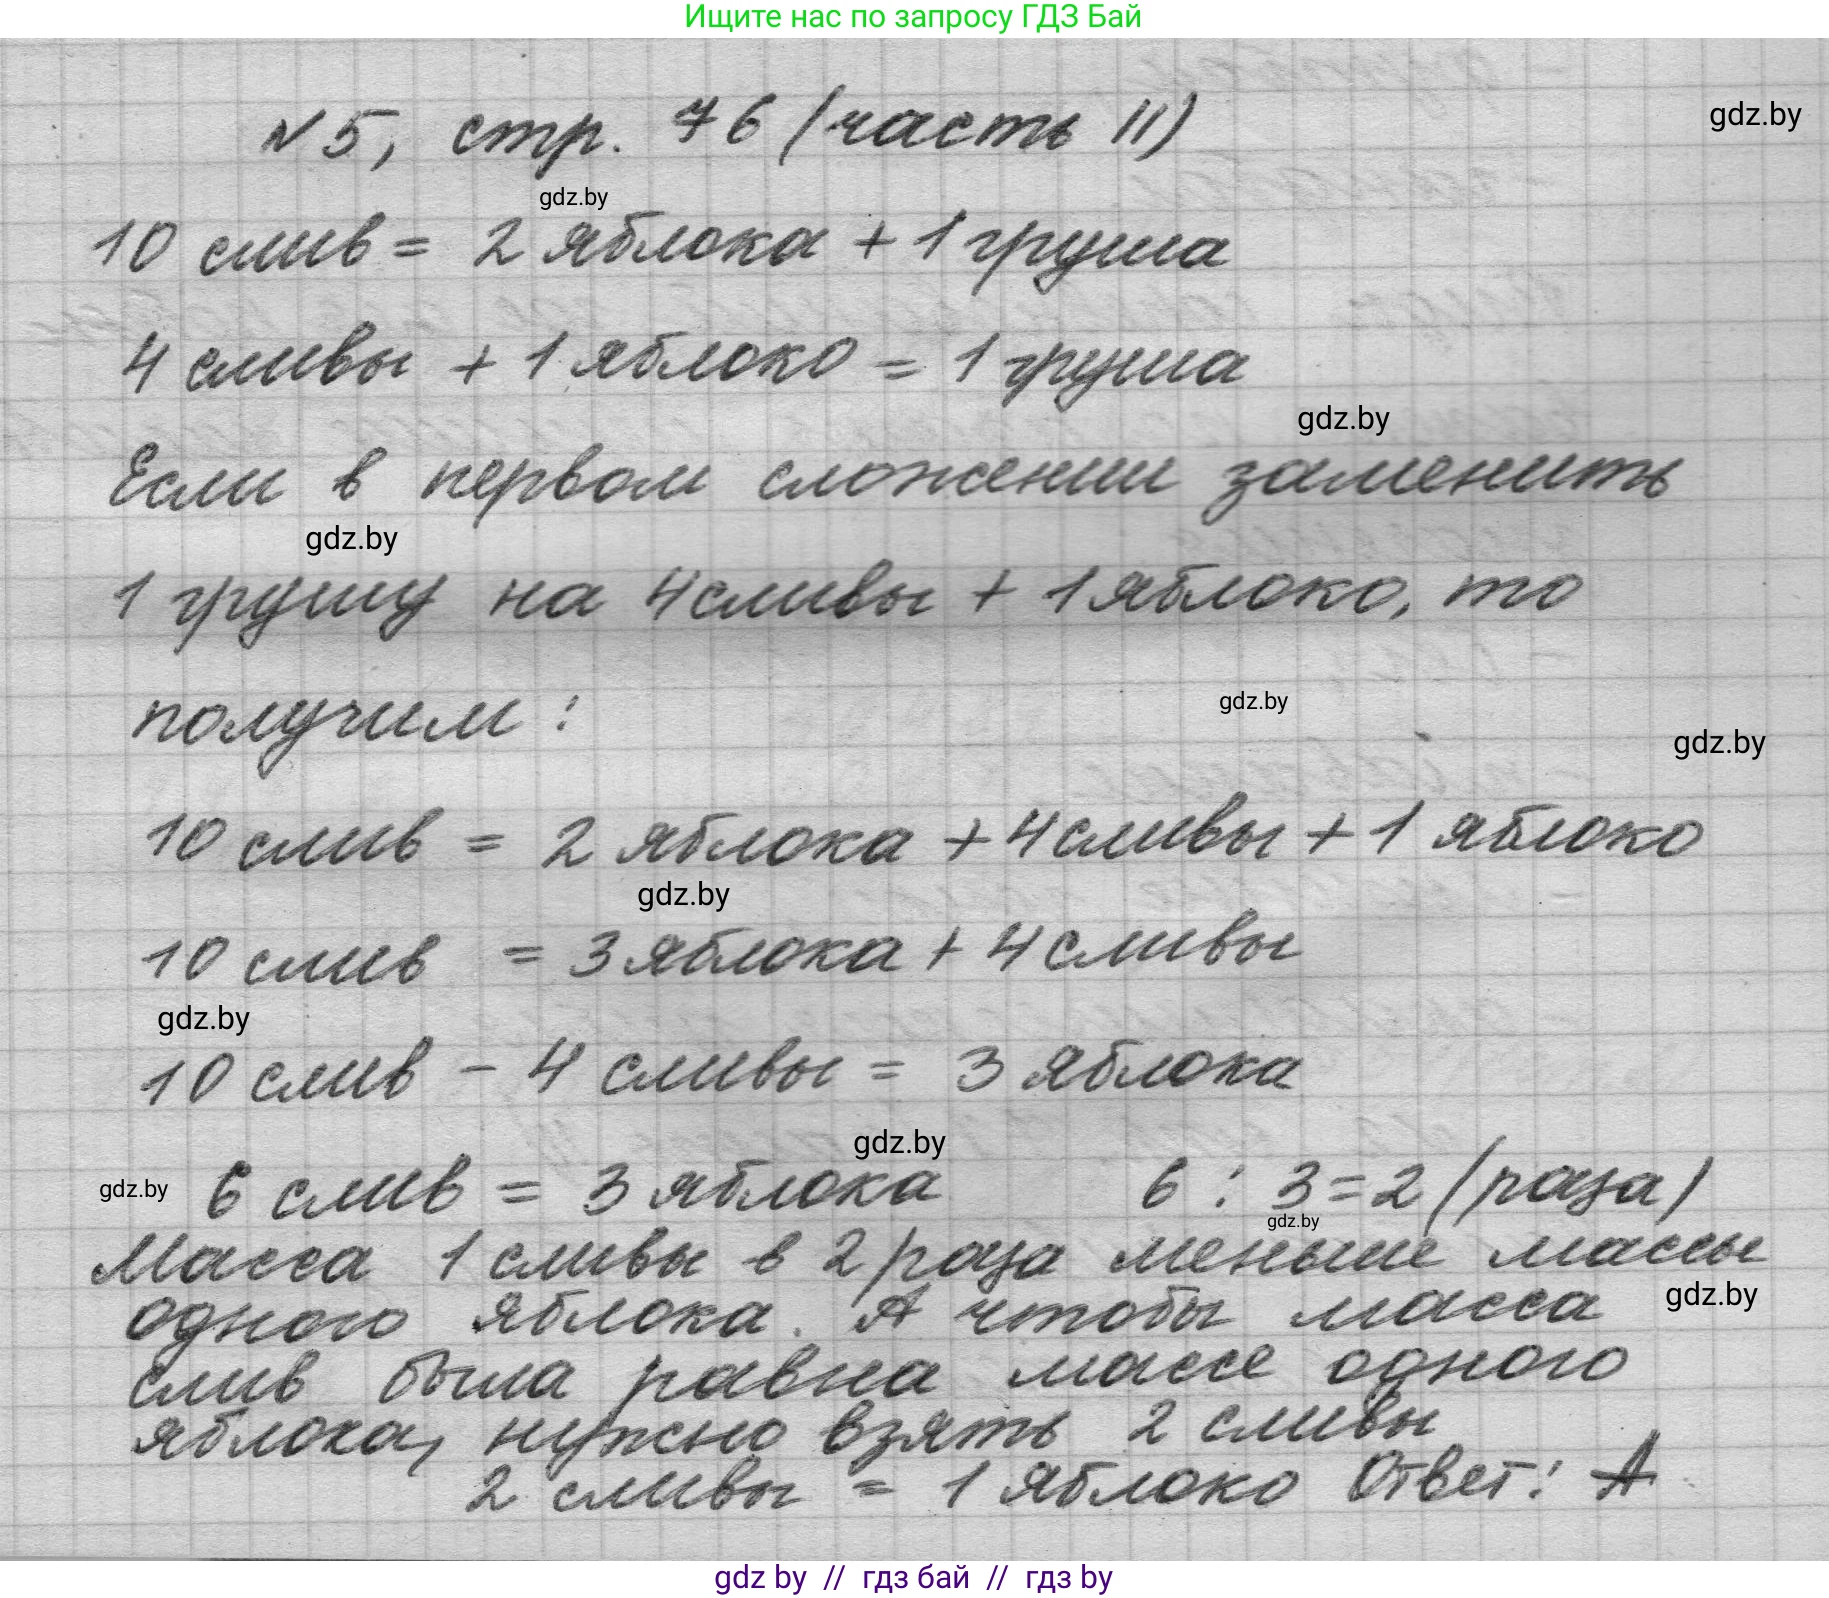 Ищите нас по запросу ГДЗ Бай
№5, стр. 76 (часть II)
gdz.by
gdz.by
10 слив = 2 яблока + 1 груша
4 сливы + 1 яблоко = 1 груша
gdz.by
Если в первом сложении заменить
gdz.by
1 грушу на 4 сливы + 1 яблоко, то
получим:
gdz.by
gdz.by
10 слив = 2 яблока + 4 сливы + 1 яблоко
gdz.by
10 слив = 3 яблока + 4 сливы
gdz.by
10 слив - 4 сливы = 3 яблока
gdz.by
gdz.by
6 слив = 3 яблока 6 : 3 = 2 (раза)
gdz.by
Масса 1 сливы в 2 раза меньше массы
gdz.by
одного яблока. А чтобы масса
слив была равна массе одного
яблока, нужно взять 2 сливы
2 сливы = 1 яблоко Ответ: А
gdz by // гдз бай // гдз by